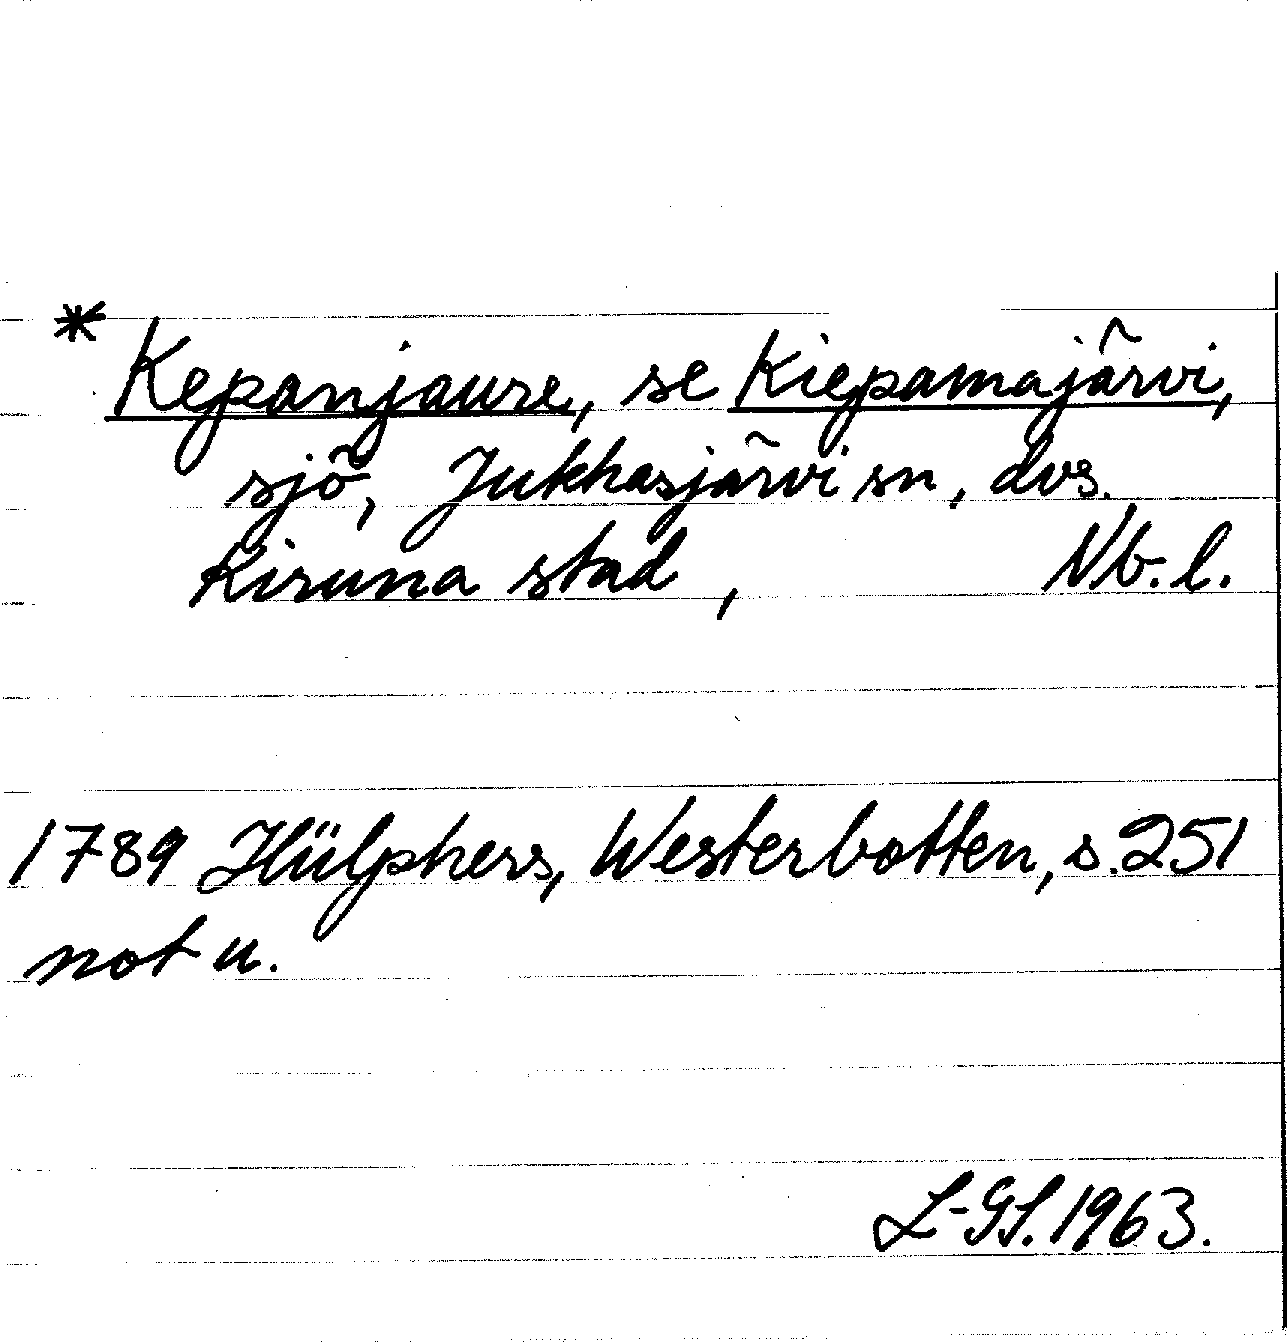 * Kepanjaure, se Kiepamajärvi,
sjö, Jukkasjärvi sn, dvs.
Kiruna stad, Nb. l.
1789 Hülphers, Westerbotten, s. 251
not u.
L-GS. 1963.